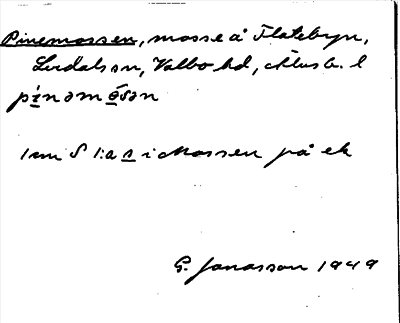 Pinemossen, mosse å Flatebyn,
Lerdals sn, Valbo hd, Älvsb. l
pi̱nəmo̱sən
1 cm S 1:a s i Mossen på ek
G. Jonasson 1949